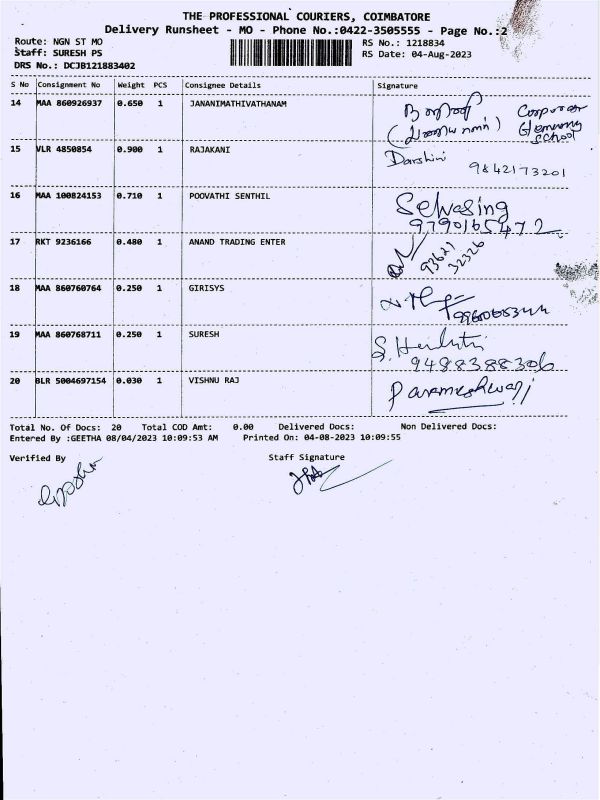 THE PROFESSIONAL COURIERS, COIMBATORE
Delivery Runsheet - MO - Phone No.:0422-3505555 - Page No.:2
Route: NGN ST MO
RS No.: 1218834
Staff: SURESH PS
RS Date: 04-Aug-2023
DRS No.: DCJB121883402
S No Consignment No Weight PCS Consignee Details Signature
14 MAA 860926937 0.650 1 JANANIMATHIVATHANAM
school
15 VLR 4850854 0.900 1 RAJAKANI Darshini
9842173201
16 MAA 100824153 0.710 1 POOVATHI SENTHIL Selvasing
9790165472
17 RKT 9236166 0.480 1 ANAND TRADING ENTER
93621
32326
18 MAA 860760764 0.250 1 GIRISYS
19 MAA 860768711 0.250 1 SURESH
9488388306
20 BLR 5004697154 0.030 1 VISHNU RAJ Parameshwari
Total No. Of Docs: 20 Total COD Amt: 0.00 Delivered Docs: Non Delivered Docs:
Entered By :GEETHA 08/04/2023 10:09:53 AM Printed On: 04-08-2023 10:09:55
Verified By Staff Signature